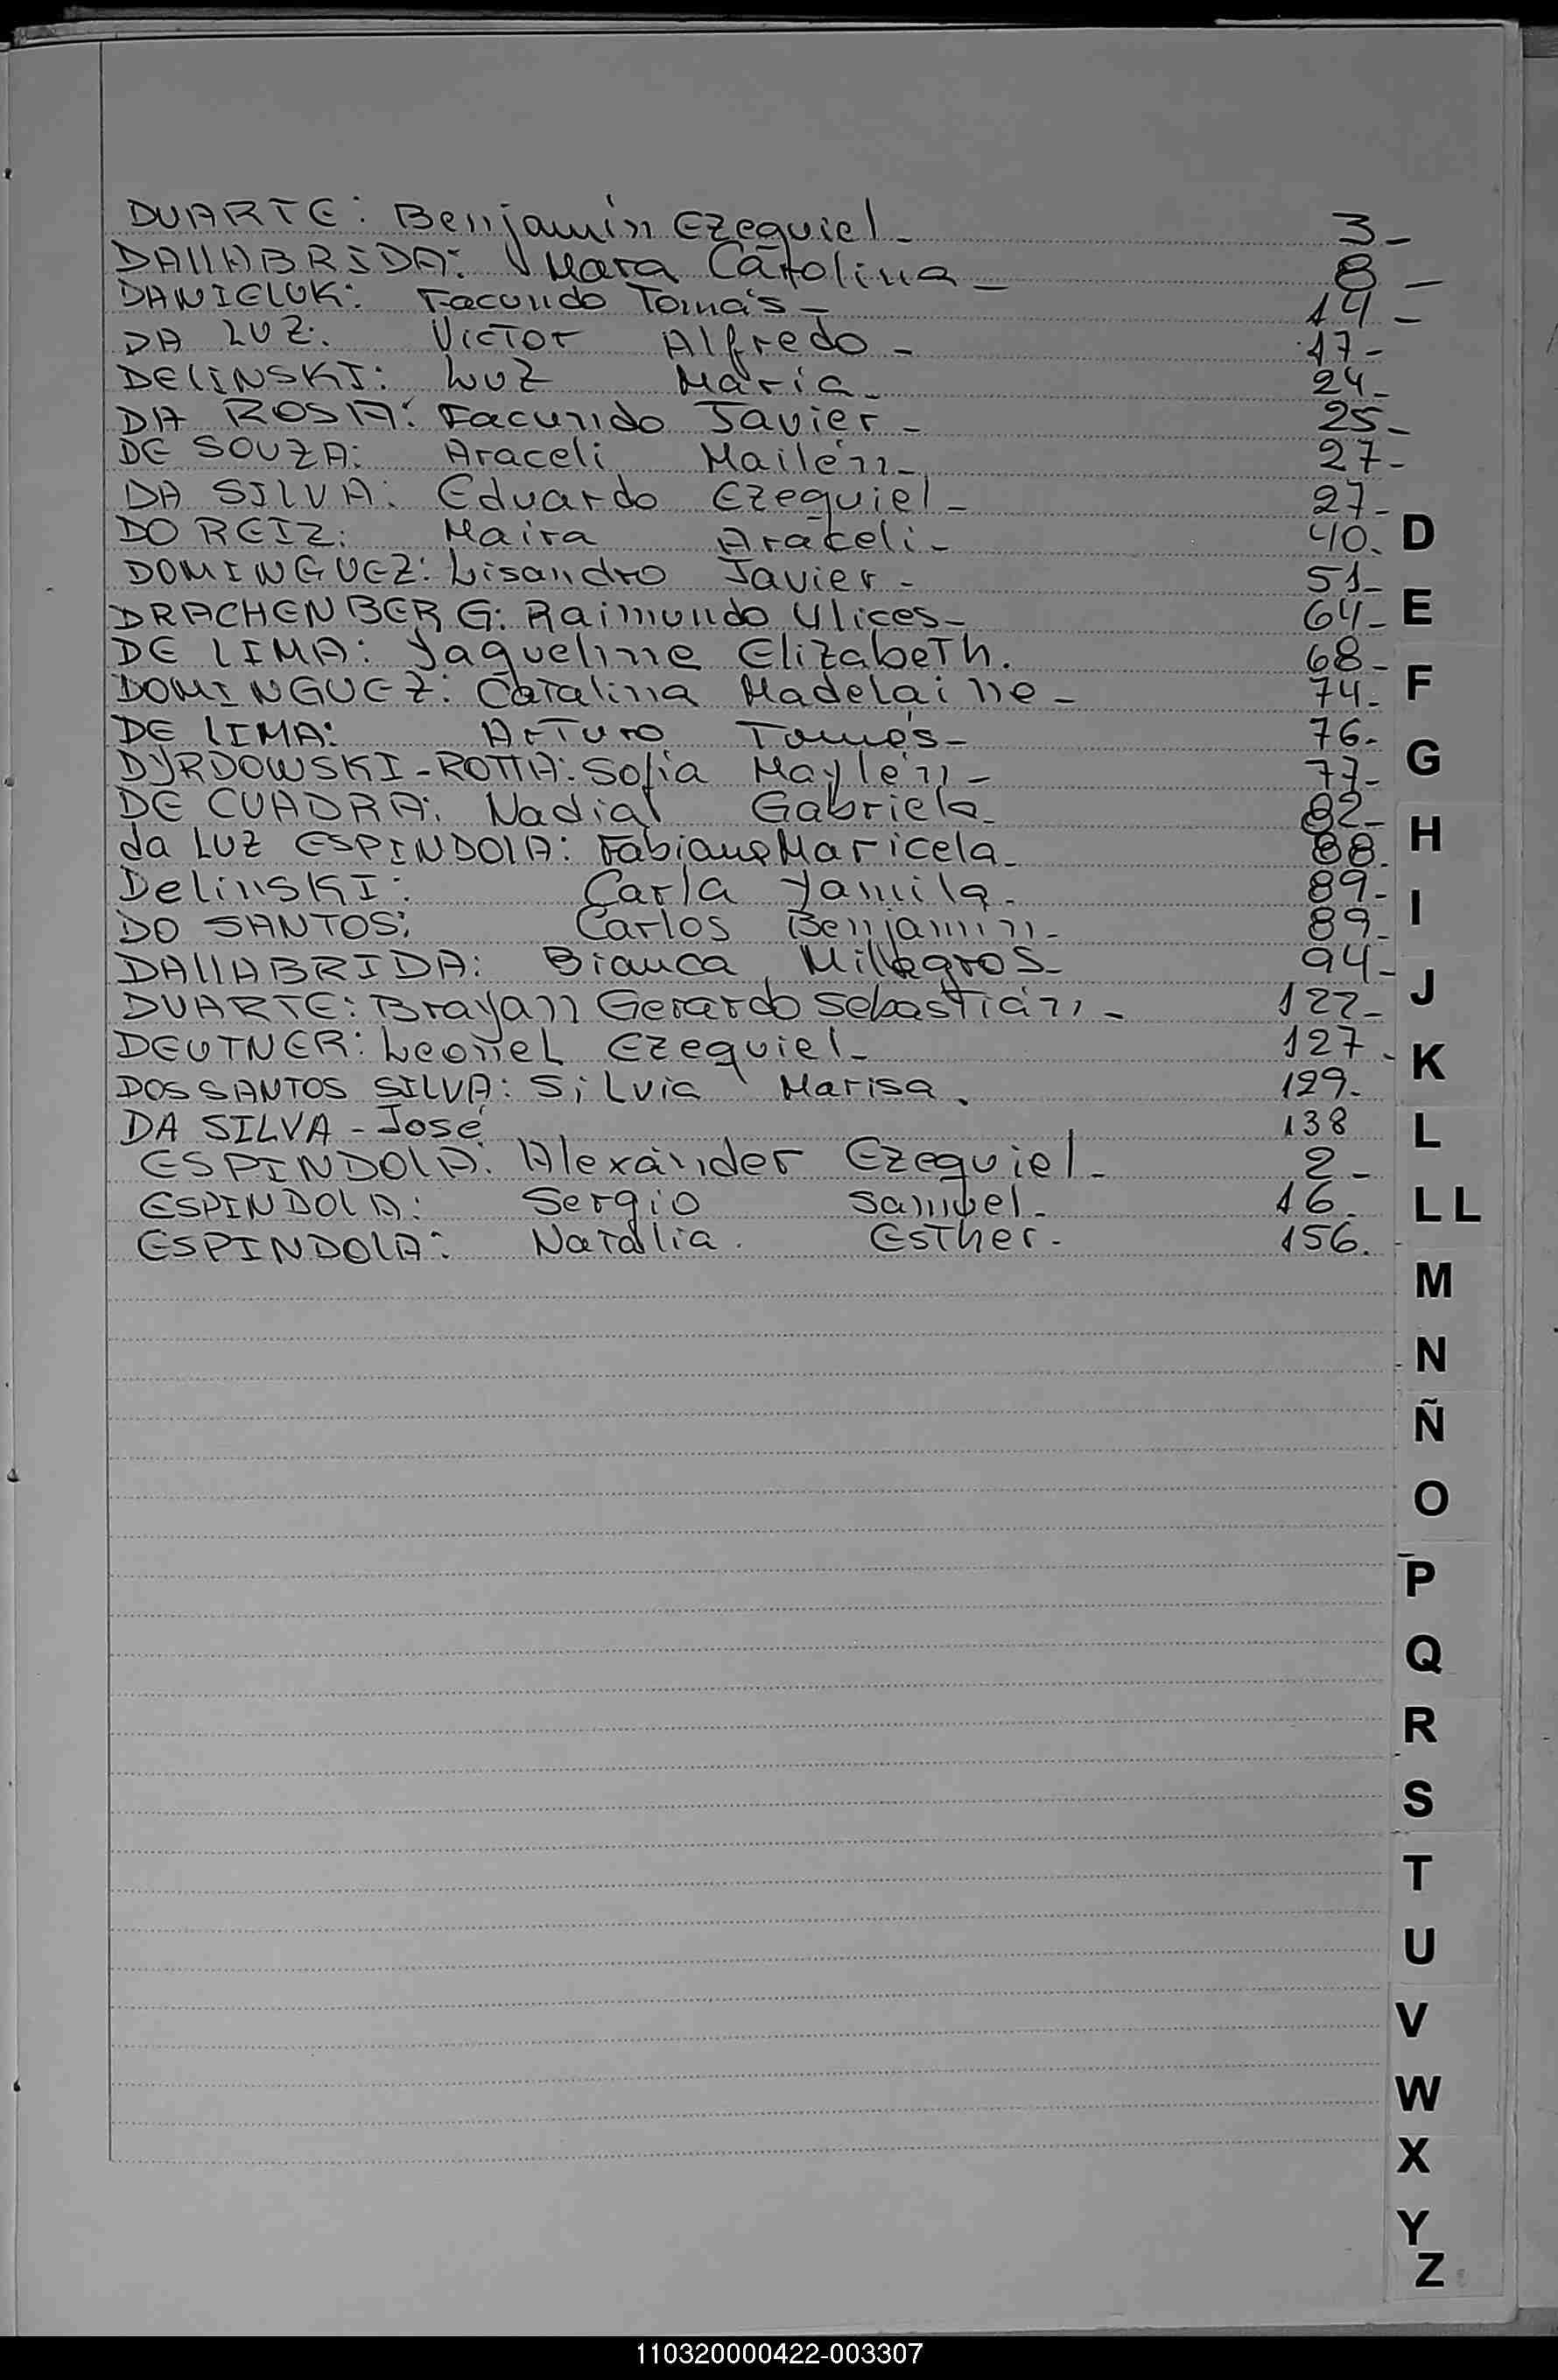 DUARTE: Benjamín Ezequiel - 3 -
DALLABRIDA: Mara Carolina - 8 -
DANIELUK: Facundo Tomás - 14 -
DA LUZ: Victor Alfredo - 17 -
DELINSKI: Luz María - 24 -
DA ROSA: Facundo Javier - 25 -
DE SOUZA: Araceli Mailén - 27 -
DA SILVA: Eduardo Ezequiel - 27 -
DO REIZ: Maira Araceli - 40.
DOMINGUEZ: Lisandro Javier - 51 -
DRACHENBERG: Raimundo Ulices - 64 -
DE LIMA: Yaqueline Elizabeth. 68 -
DOMINGUEZ: Catalina Madelaine - 74 -
DE LIMA: Arturo Tomás - 76 -
DYRDOWSKI-ROTTA: Sofia Maylén - 77 -
DE CUADRA: Nadia Gabriela - 82 -
da LUZ ESPINDOLA: Maricela - 88.
DelinSKI: Carla Yamila - 89 -
DO SANTOS: Carlos Benjamin - 89 -
DALLABRIDA: Bianca Milagros - 94 -
DUARTE: Brayan Gerardo Sebastián - 122 -
DEUTNER: Leonel Ezequiel - 127 -
DOS SANTOS SILVA: Silvia Marisa. 129 -
DA SILVA - José 138
ESPINDOLA: Alexánder Ezequiel - 2 -
ESPINDOLA: Sergio Samuel - 16.
ESPINDOLA: Natalia. Esther - 156.
D
E
F
G
H
I
J
K
L
LL
M
N
Ñ
O
P
Q
R
S
T
U
V
W
X
Y
Z
110320000422-003307